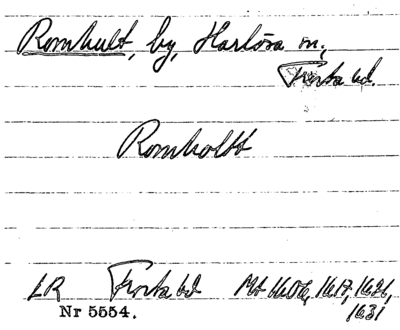 Romhult, by, Harlösa sn,
Frosta hd.
Romholtt
LR Frosta hd Mt 1606, 1617, 1626,
1631
Nr 5554.